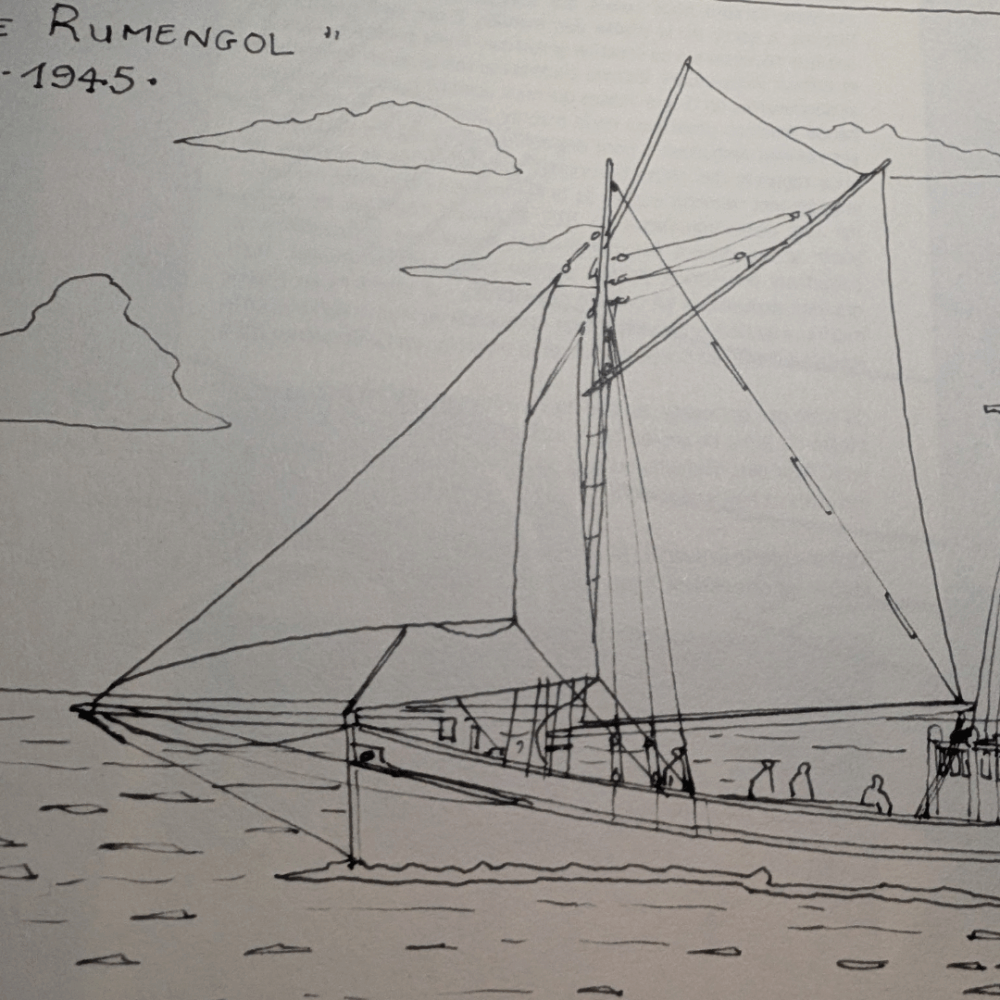 E RUMENGOL "
- 1945 •